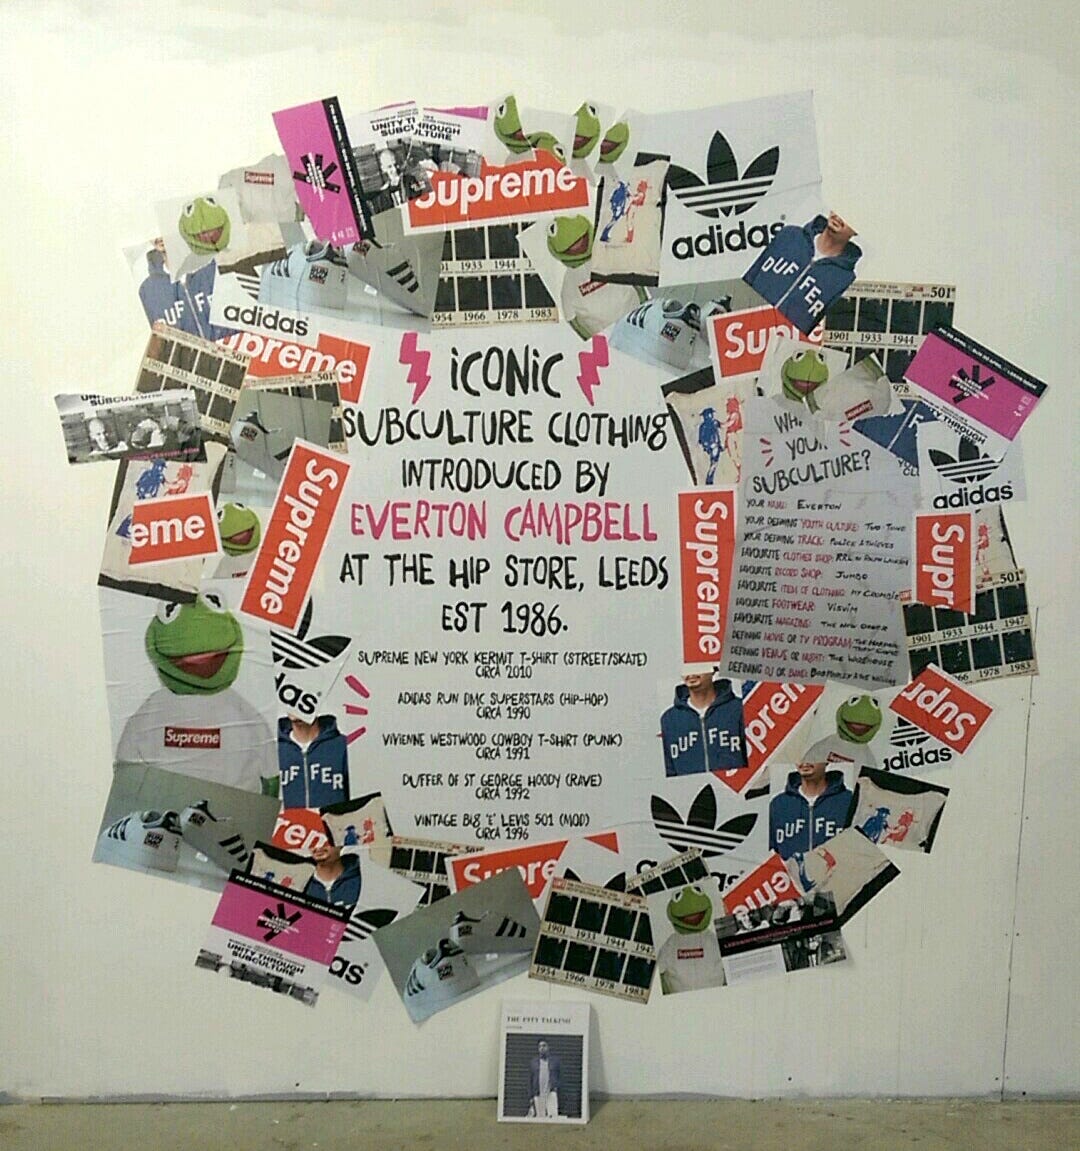 UNITY THROUGH
SUBCULTURE
Supreme
adidas
Supreme
1933 1944
1954 1966 1978 1983
DUFFER
adidas
Supreme
501
1901 1933 1944
ICONIC
SUBCULTURE CLOTHING
INTRODUCED BY
EVERTON CAMPBELL
AT THE HIP STORE, LEEDS
EST 1986.
SUPREME NEW YORK KERMIT T-SHIRT (STREET/SKATE)
CIRCA 2010
ADIDAS RUN DMC SUPERSTARS (HIP-HOP)
CIRCA 1990
VIVIENNE WESTWOOD COWBOY T-SHIRT (PUNK)
CIRCA 1991
DUFFER OF ST GEORGE HOODY (RAVE)
CIRCA 1992
VINTAGE BIG 'E' LEVIS 501 (MOD)
CIRCA 1996
YOUR
SUBCULTURE?
YOUR NAME: EVERTON
YOUR DEFINING YOUTH CULTURE: TWO TONE
YOUR DEFINING TRACK: POLICE & THIEVES
FAVOURITE CLOTHES SHOP: RRL
FAVOURITE RECORD SHOP: JUMBO
FAVOURITE ITEM OF CLOTHING: MY CROMBIE
FAVOURITE FOOTWEAR: VISVIM
FAVOURITE MAGAZINE: THE NEW ORDER
DEFINING MOVIE OR TV PROGRAM: THE HARDER THEY COME
DEFINING VENUE OR NIGHT: THE WAREHOUSE
DEFINING DJ OR BAND: BOB MARLEY & THE WAILERS
adidas
eme
Supreme
Supreme
Supr
501
1901 1933 1944 1947
66 1978 1983
das
Supreme
DUFFER
DUFFER
preme
Supr
adidas
DUFFE
Supre
UNITY THROUGH
SUBCULTURE
as
1901 1933 1944 1947
1954 1966 1978 1983
Supreme
LEEDSINTERNATIONALFESTIVAL.COM
THE CITY TALKING